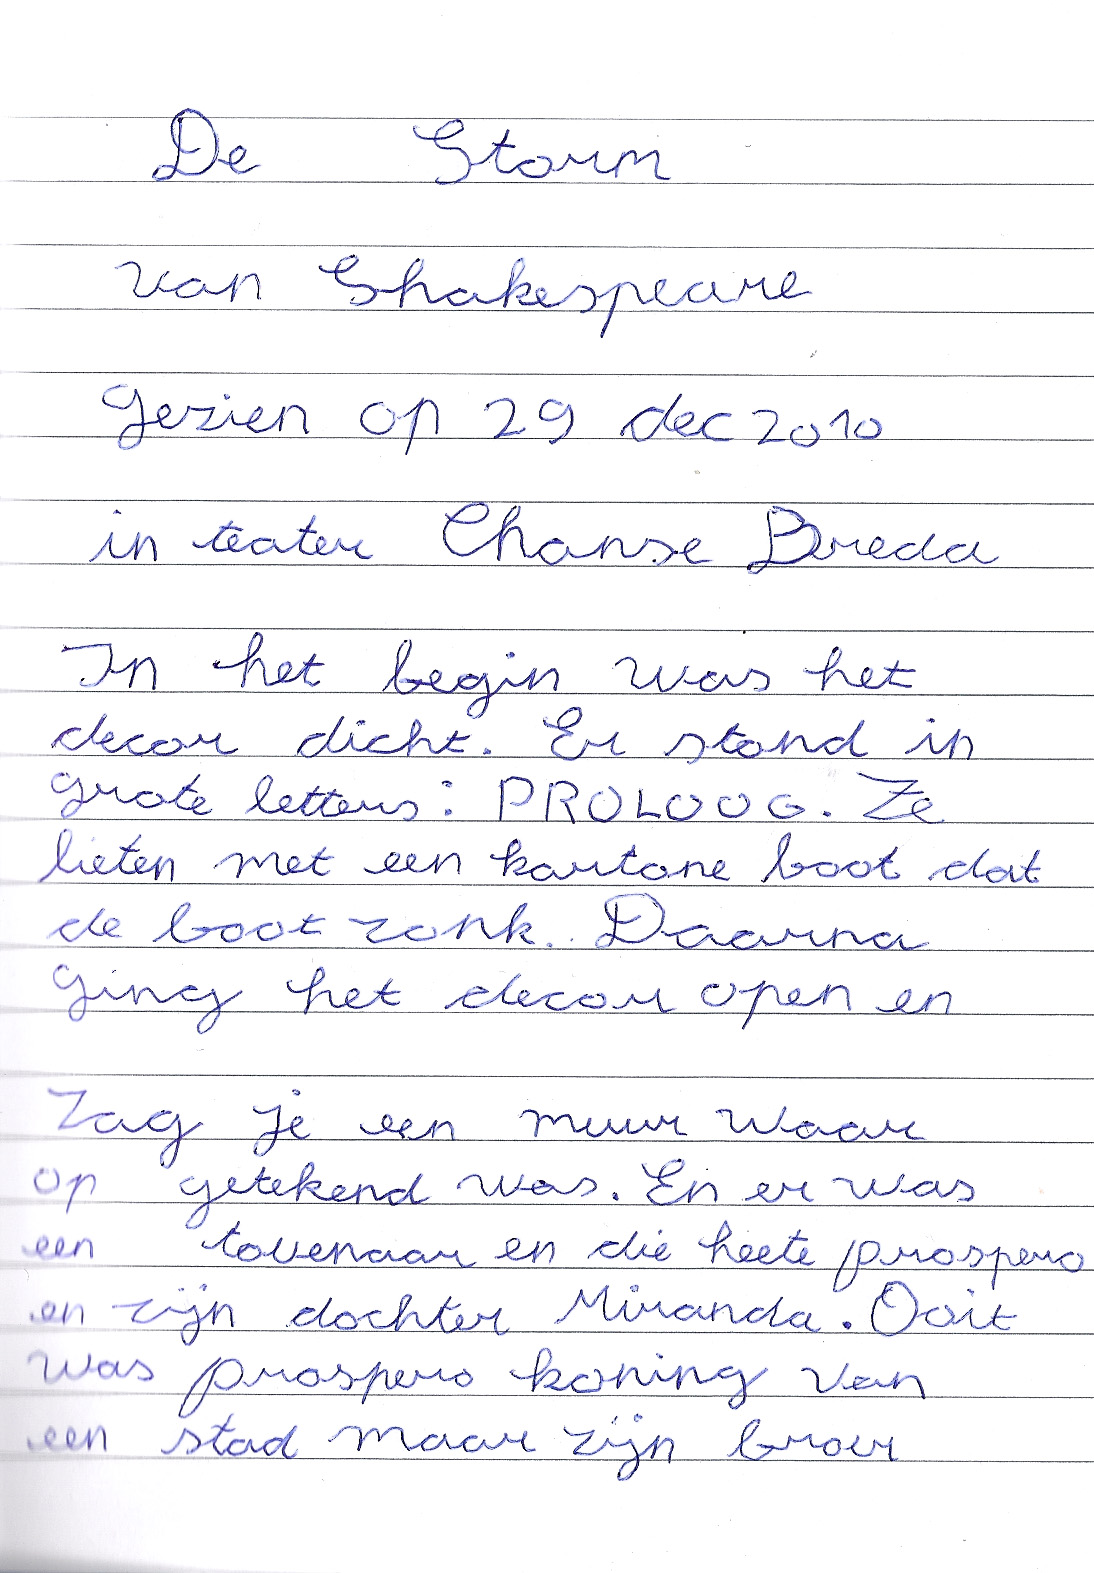 De Storm
van Shakespeare
gezien op 29 dec 2010
in teater Chanse Breda
In het begin was het
decor dicht. Er stond in
grote letters: PROLOOG. Ze
lieten met een kartone boot dat
de boot zonk. Daarna
ging het decor open en
zag je een muur waar
op getekend was. En er was
een tovenaar en die heete prospero
en zijn dochter Miranda. Ooit
was prospero koning van
een stad maar zijn broer